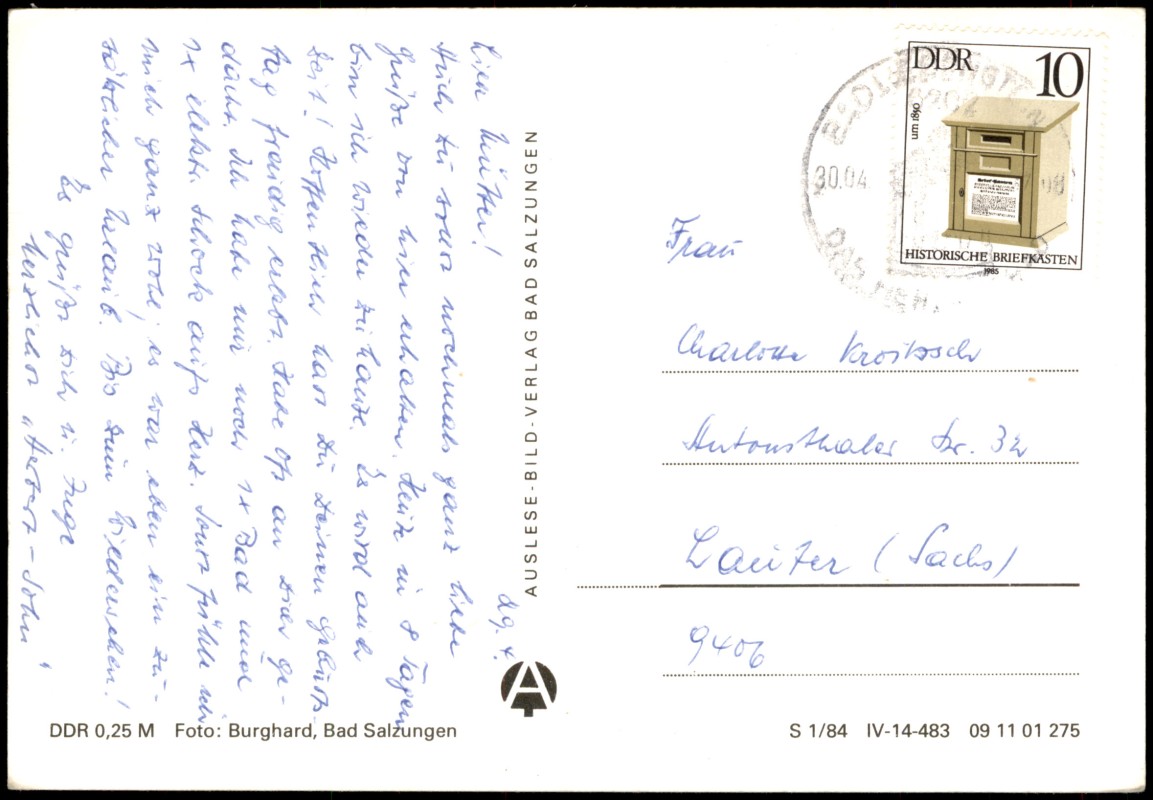 Liebe Mutter! 29.4.
Auch Du sollst nochmals ganz liebe
Grüße von hier erhalten. Heute in 8 Tagen
bin ich wieder zu Hause. Es wird auch
Zeit! Hoffentlich hast Du Deinen Geburts-
tag freudig erlebt. Habe oft an Dich ge-
dacht. Ich habe nur noch 1x Bad und
1x elektr. Schock aufs Herz. Sonst fühle ich
mich ganz wohl, es war eben ein zu-
sätzlicher Urlaub. Bis zum Wiedersehen!
Es grüßt Dich u. Inge
herzlichst "Herbert - Sohn"
AUSLESE-BILD-VERLAG BAD SALZUNGEN
DDR 10
um 1850
HISTORISCHE BRIEFKÄSTEN
1985
30.04.
Frau
Charlotte Kroitzsch
Antonsthaler Str. 32
Lauter (Sachs)
9406
DDR 0,25 M Foto: Burghard, Bad Salzungen
S 1/84 IV-14-483 09 11 01 275